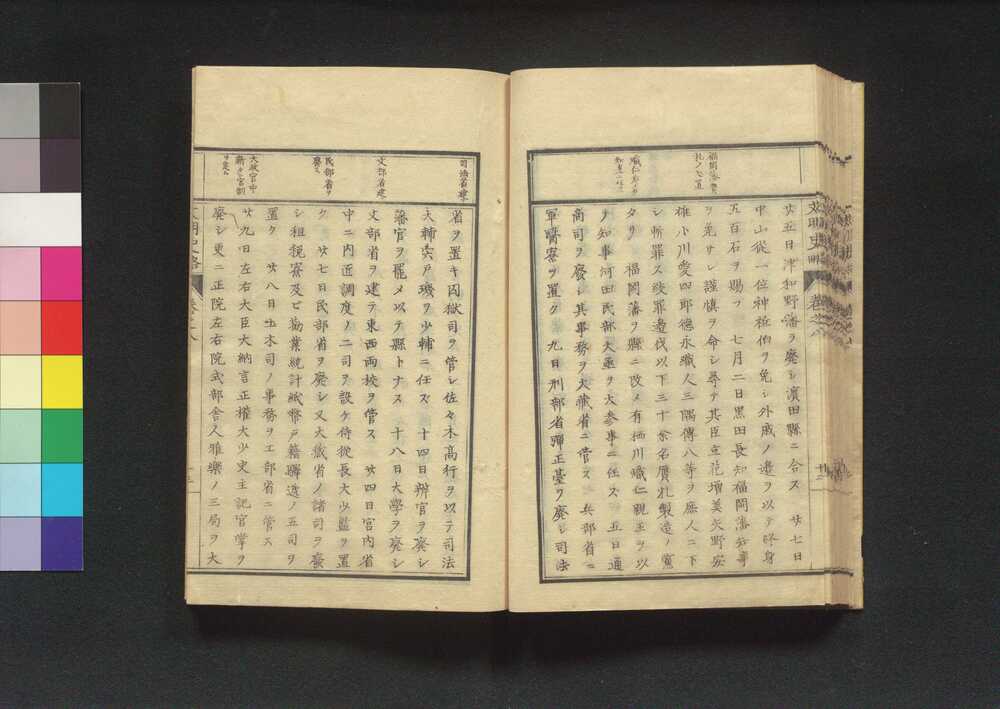 廿五日津和野藩ヲ廢シ濱田縣ニ合ス　廿七日
中山從一位神祇伯ヲ免シ外戚ノ邉ヲ以テ終身
五百石ヲ賜フ　七月二日黒田長知福岡藩知事
ヲ免サレ謹慎ヲ命シ尋テ其臣立花増美矢野安
雄小川愛四郎德永織人三隅傳八等ヲ庶人ニ下
シ斬罪ス絞罪遣伐以下三十余名贋札製造ノ
タリ　福岡藩ヲ縣ニ改メ有栖川熾仁親王ヲ以
テ知事河田民部大丞ヲ大參事ニ任ス　五日通
商司ヲ廢シ其事務ヲ大藏省ニ管ス　兵部省ニ
軍醫寮ヲ置ク　九日刑部省彈正臺ヲ廢シ司法
文明史畧　卷之八
司法省建
文部省建
民部省ヲ廢ス
太政官中
省ヲ置キ囚獄司ヲ管シ佐々木高行ヲ以テ司法
大輔宍戸璣ヲ少輔ニ任ス　十四日辨官ヲ廢シ
藩官ヲ罷メ以テ縣トナス　十八日大學ヲ廢シ
文部省ヲ建テ東西両校ヲ管ス　廿四日宮内省
中ニ内匠調度ノ二司ヲ設ケ侍從長大少監ヲ置
ク　廿七日民部省ヲ廢シ又大藏省ノ諸司ヲ廢
シ租税寮及ヒ勸業統計紙幣戸籍驛逓ノ五司ヲ
置ク　廿八日土木司ノ事務ヲ工部省ニ管ス
廿九日左右大臣大納言正權大少史主記官掌ヲ
廢シ更ニ正院左右院式部舎人雅樂ノ三局ヲ大